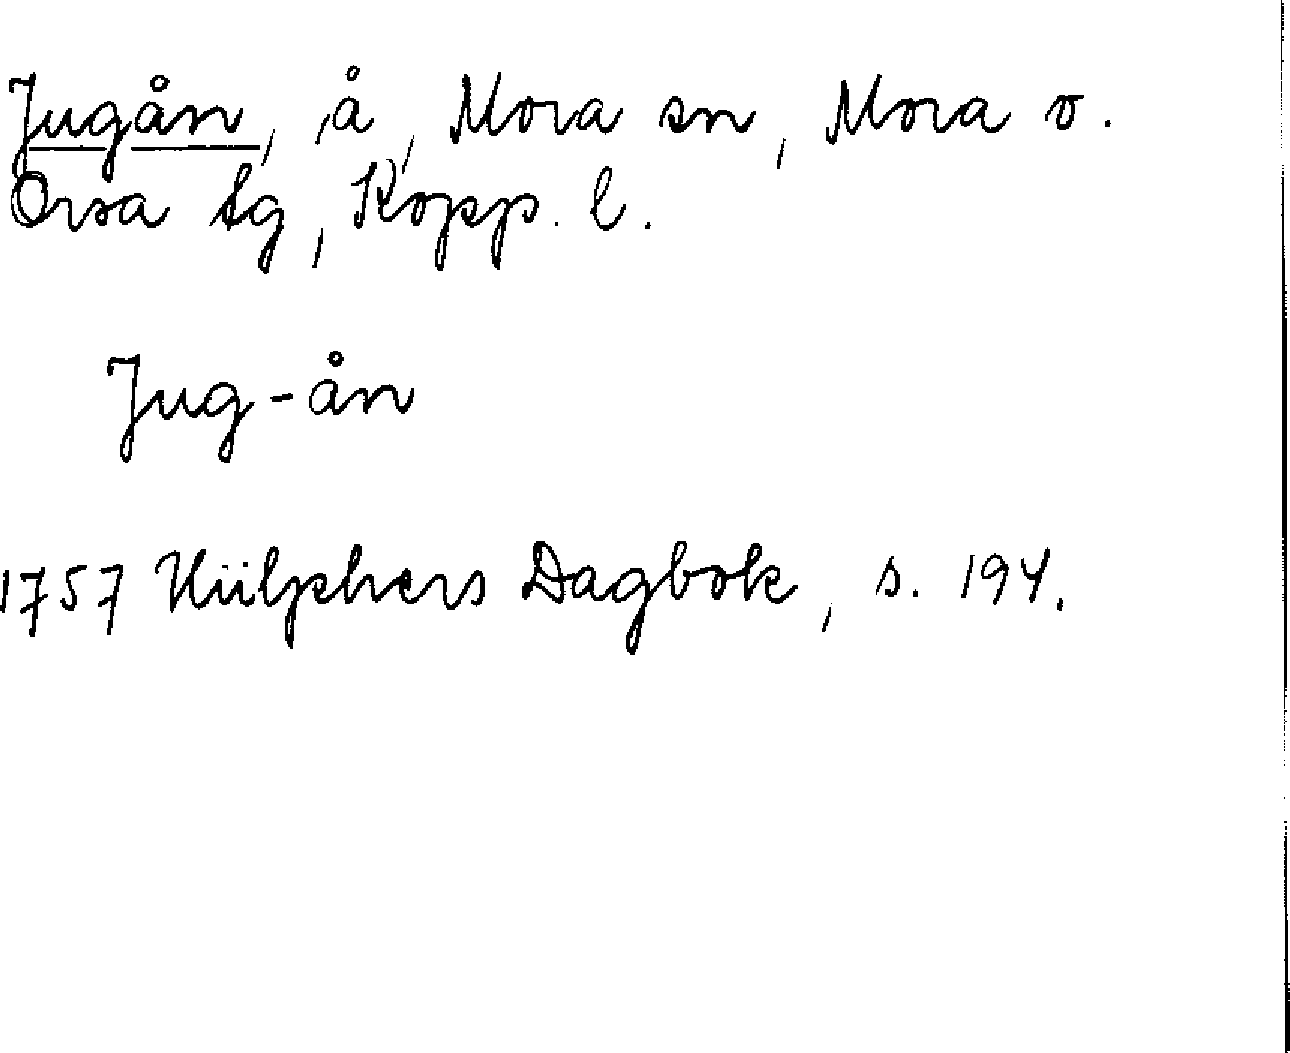 Jugån, ‚å‘, Mora sn, Mora o.
Orsa tg, Kopp. l.
Jug-ån
1757 Hülphers Dagbok, s. 194.